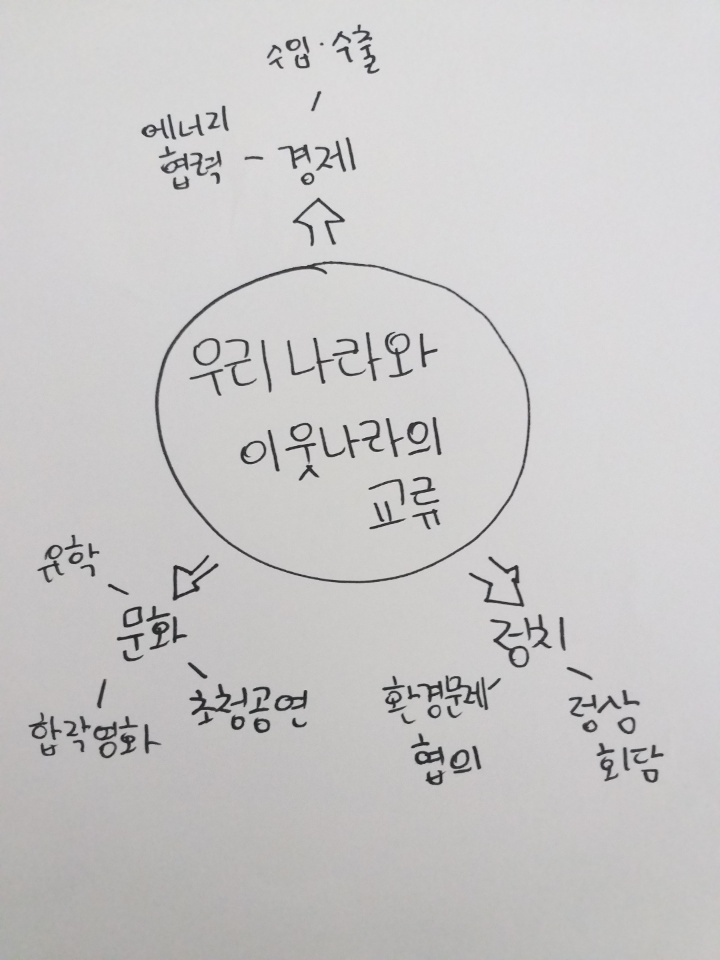 수입·수출
에너지
협력 - 경제
우리 나라와
이웃나라의
교류
유학
문화
합작영화
초청공연
정치
환경문제
협의
정상
회담